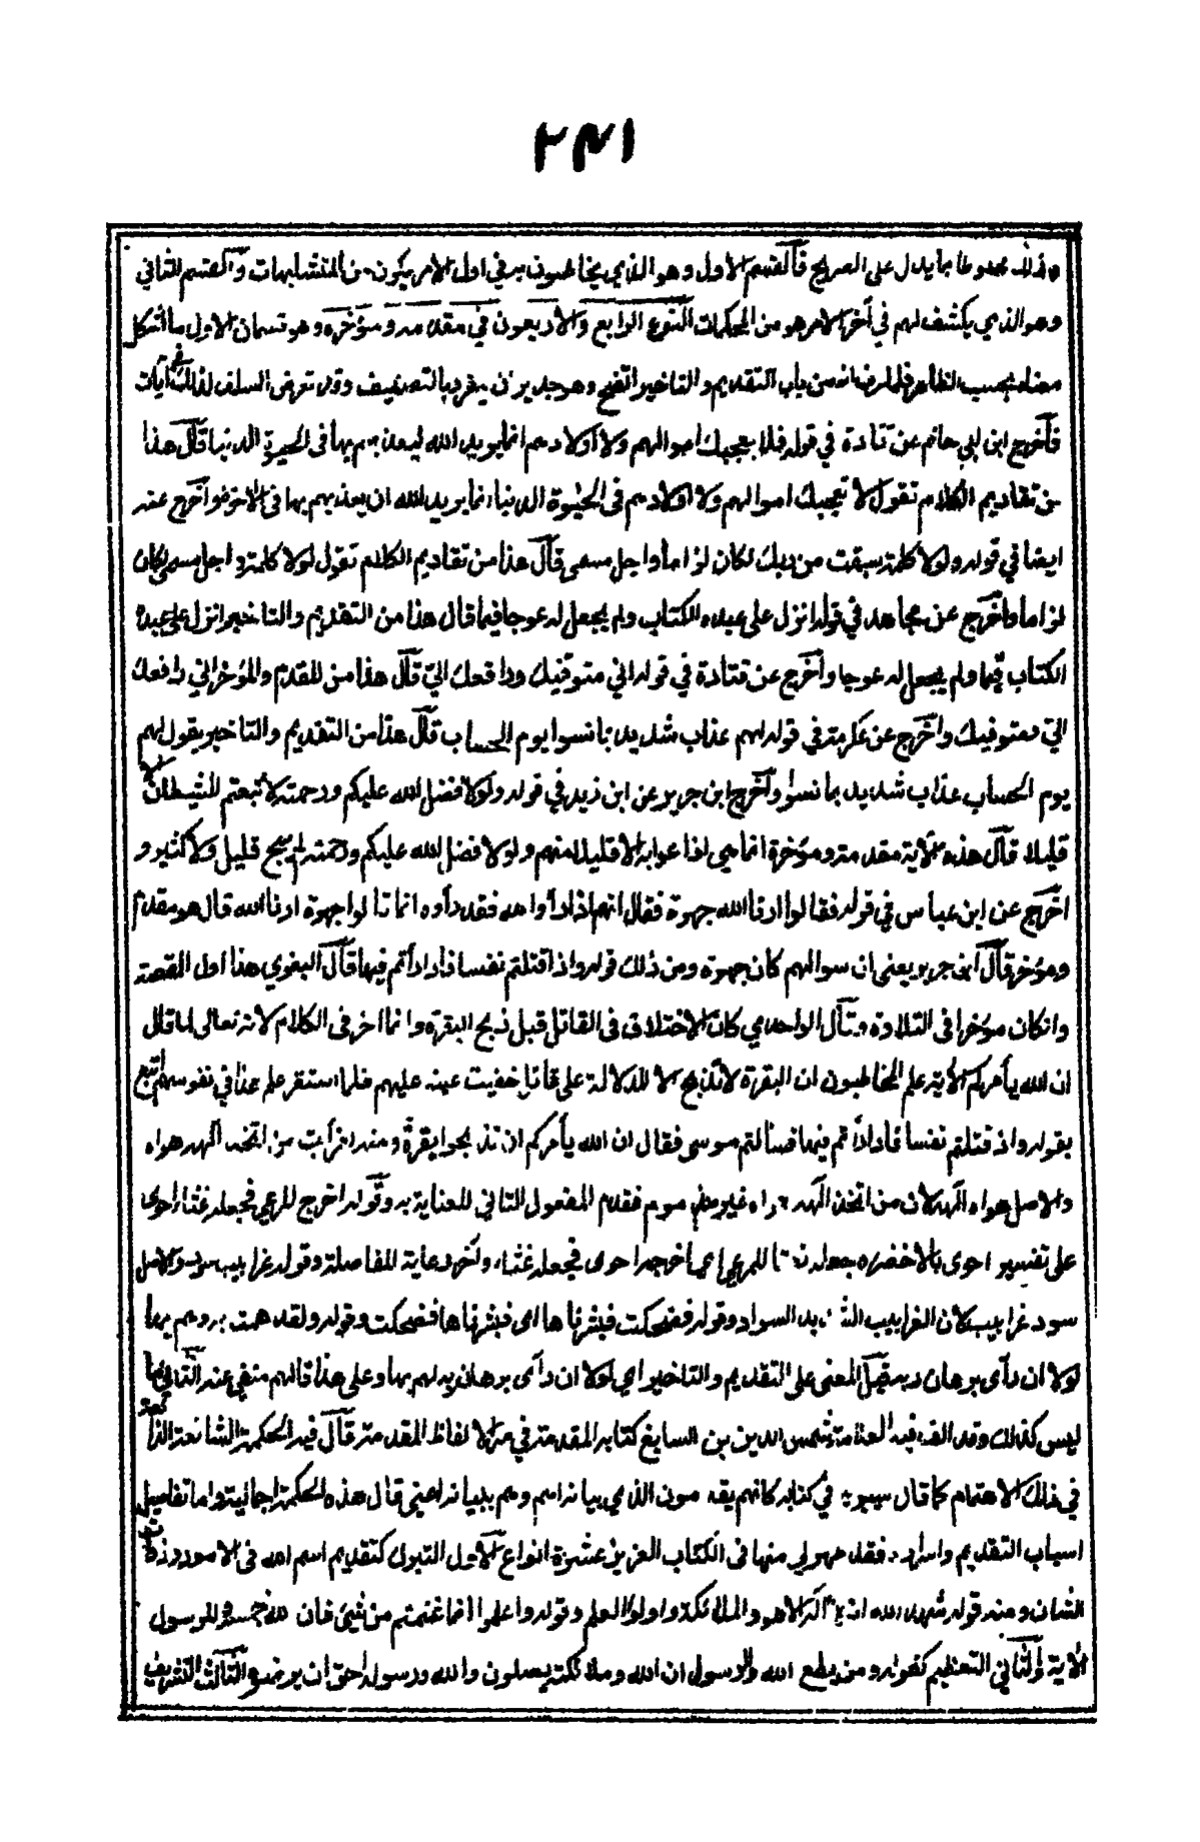 ٢٤١
وذلك محوطا بما يدل على الصريح فالقسم الاول وهو الذي يخاطبون به في اول الامر يكون من المتشابهات والقسم الثاني
وهو الذي يكشف لهم في آخر الامر هو من المحكمات النوع الرابع والاربعون في مقدمه ومؤخره وهو قسمان الاول ما اشكل
معناه بحسب الظاهر فلما عرف انه من باب التقديم والتاخير اتضح وهو جدير ان يفرد بالتصنيف وقد تعرض السلف لذلك في آيات
فأخرج ابن ابي حاتم عن قتادة في قوله فلا يعجبك اموالهم ولا اولادهم انما يريد الله ليعذبهم بها في الحيوة الدنيا قال هذا
من تقاديم الكلام تقول لا تعجبك اموالهم ولا اولادهم في الحيوة الدنيا انما يريد الله ان يعذبهم بها في الآخرة واخرج عنه
ايضا في قوله ولولا كلمة سبقت من ربك لكان لزاما واجل مسمى قال هذا من تقاديم الكلام تقول لولا كلمة واجل مسمى لكان
لزاما واخرج عن مجاهد في قوله انزل على عبده الكتاب ولم يجعل له عوجا قيما قال هذا من التقديم والتاخير انزل على عبده
الكتاب قيما ولم يجعل له عوجا واخرج عن قتادة في قوله اني متوفيك ورافعك الي قال هذا من المقدم والمؤخر اني رافعك
الي ومتوفيك واخرج عن عكرمة في قوله لهم عذاب شديد بما نسوا يوم الحساب قال هذا من التقديم والتاخير يقول لهم
يوم الحساب عذاب شديد بما نسوا واخرج ابن جرير عن ابن زيد في قوله ولولا فضل الله عليكم ورحمته لاتبعتم الشيطان الا
قليلا قال هذه الآية مقدمة ومؤخرة انما هي اذاعوا به الا قليلا منهم ولولا فضل الله عليكم ورحمته لم ينج قليل ولا كثير و
اخرج عن ابن عباس في قوله فقالوا ارنا الله جهرة فقال انهم اذا رأوا الله فقد رأوه انما قالوا جهرة ارنا الله قال هو مقدم
ومؤخر قال ابن جرير يعني ان سوالهم كان جهرة ومن ذلك قوله واذ قتلتم نفسا فادارأتم فيها قال البغوي هذا اول القصة
وان كان مؤخرا في التلاوة وقال الواحدي كان الاختلاف في القاتل قبل ذبح البقرة وانما اخر في الكلام لانه تعالى لما قال
ان الله يأمركم الآية علم المخاطبون ان البقرة لا تذبح الا للدلالة على قاتل خفيت عينه عليهم فلما استقر علم هذا في نفوسهم اتبع
بقوله واذ قتلتم نفسا فادارأتم فيها فسألتم موسى فقال ان الله يأمركم ان تذبحوا بقرة ومنه افرأيت من اتخذ الهه هواه
والاصل هواه الهه لان من اتخذ الهه هواه غير مذموم فقدم المفعول الثاني للعناية به وقوله اخرج المرعى فجعله غثاء احوى
على تفسير احوى بالاخضر وجعله نعتا للمرعى اي اخرجه احوى فجعله غثاء واخر رعاية للفاصلة وقوله غرابيب سود والاصل
سود غرابيب لان الغرابيب الشديد السواد وقوله فضحكت فبشرناها اي فبشرناها فضحكت وقوله ولقد همت به وهم بها
لولا ان رأى برهان ربه قيل المعنى على التقديم والتاخير اي لولا ان رأى برهان ربه لهم بها وعلى هذا فالهم منفي عنه الثاني ما
ليس كذلك وقد الف فيه العلامة شمس الدين بن الصايغ كتابه المقدمة في سر الالفاظ المقدمة قال فيه الحكمة الشائعة الذائعة
في ذلك الاهتمام كما قال سيبويه في كتابه كانهم يقدمون الذي بيانه اهم وهم ببيانه اعنى قال هذه الحكمة اجمالية واما تفاصيل
اسباب التقديم واسراره فقد ظهر لي منها في الكتاب العزيز عشرة انواع الاول التبرك كتقديم اسم الله في الامور ذوات
الشان ومنه قوله شهد الله انه لا اله الا هو والملائكة واولوا العلم وقوله واعلموا انما غنمتم من شيئ فان لله خمسه وللرسول
الآية والثاني التعظيم كقوله ومن يطع الله والرسول ان الله وملائكته يصلون والله ورسوله احق ان يرضوه الثالث التشريف